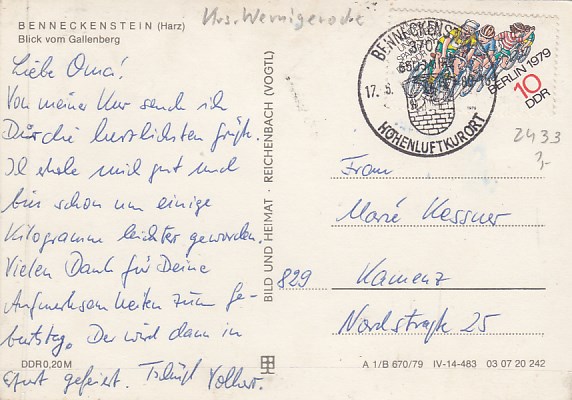 BENNECKENSTEIN (Harz)
Blick vom Gallenberg
Krs. Wernigerode
Liebe Oma!
Von meiner Kur send ich
Dir die herzlichsten Grüße.
Ich erhole mich gut und
bin schon um einige
Kilogramm leichter geworden.
Vielen Dank für Deine
Aufmerksamkeiten zum Ge-
burtstag. Der wird dann in
Erfurt gefeiert. Tschüß Volker.
DDR 0,20 M
BILD UND HEIMAT · REICHENBACH (VOGTL)
BENNECKENST
3707
17. 6.
HÖHENLUFTKURORT
BERLIN 1979
10
DDR
2433
3,-
Frau
Marie Kessner
829 Kamenz
Nordstraße 25
A 1/B 670/79 IV-14-483 03 07 20 242